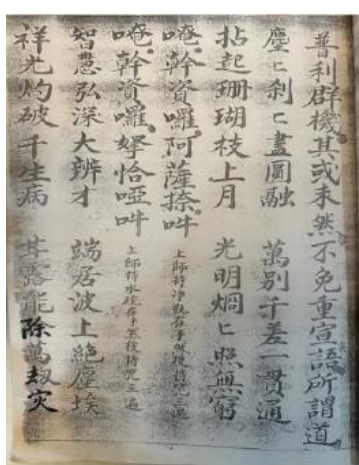 普利群機其或未然不免重宣語所謂道
塵〻刹〻盡圓融 萬別千差一貫通
拈起珊瑚枝上月 光明烱〻照無窮
唵幹資囉阿薩捺吽 上師將淨瓶
唵幹資囉拏恰啞吽 上師將水碗在手然後持咒三遍
智慧弘深大辨才 端居波上絶塵埃
祥光灼破千生病 甘露能除萬劫灾